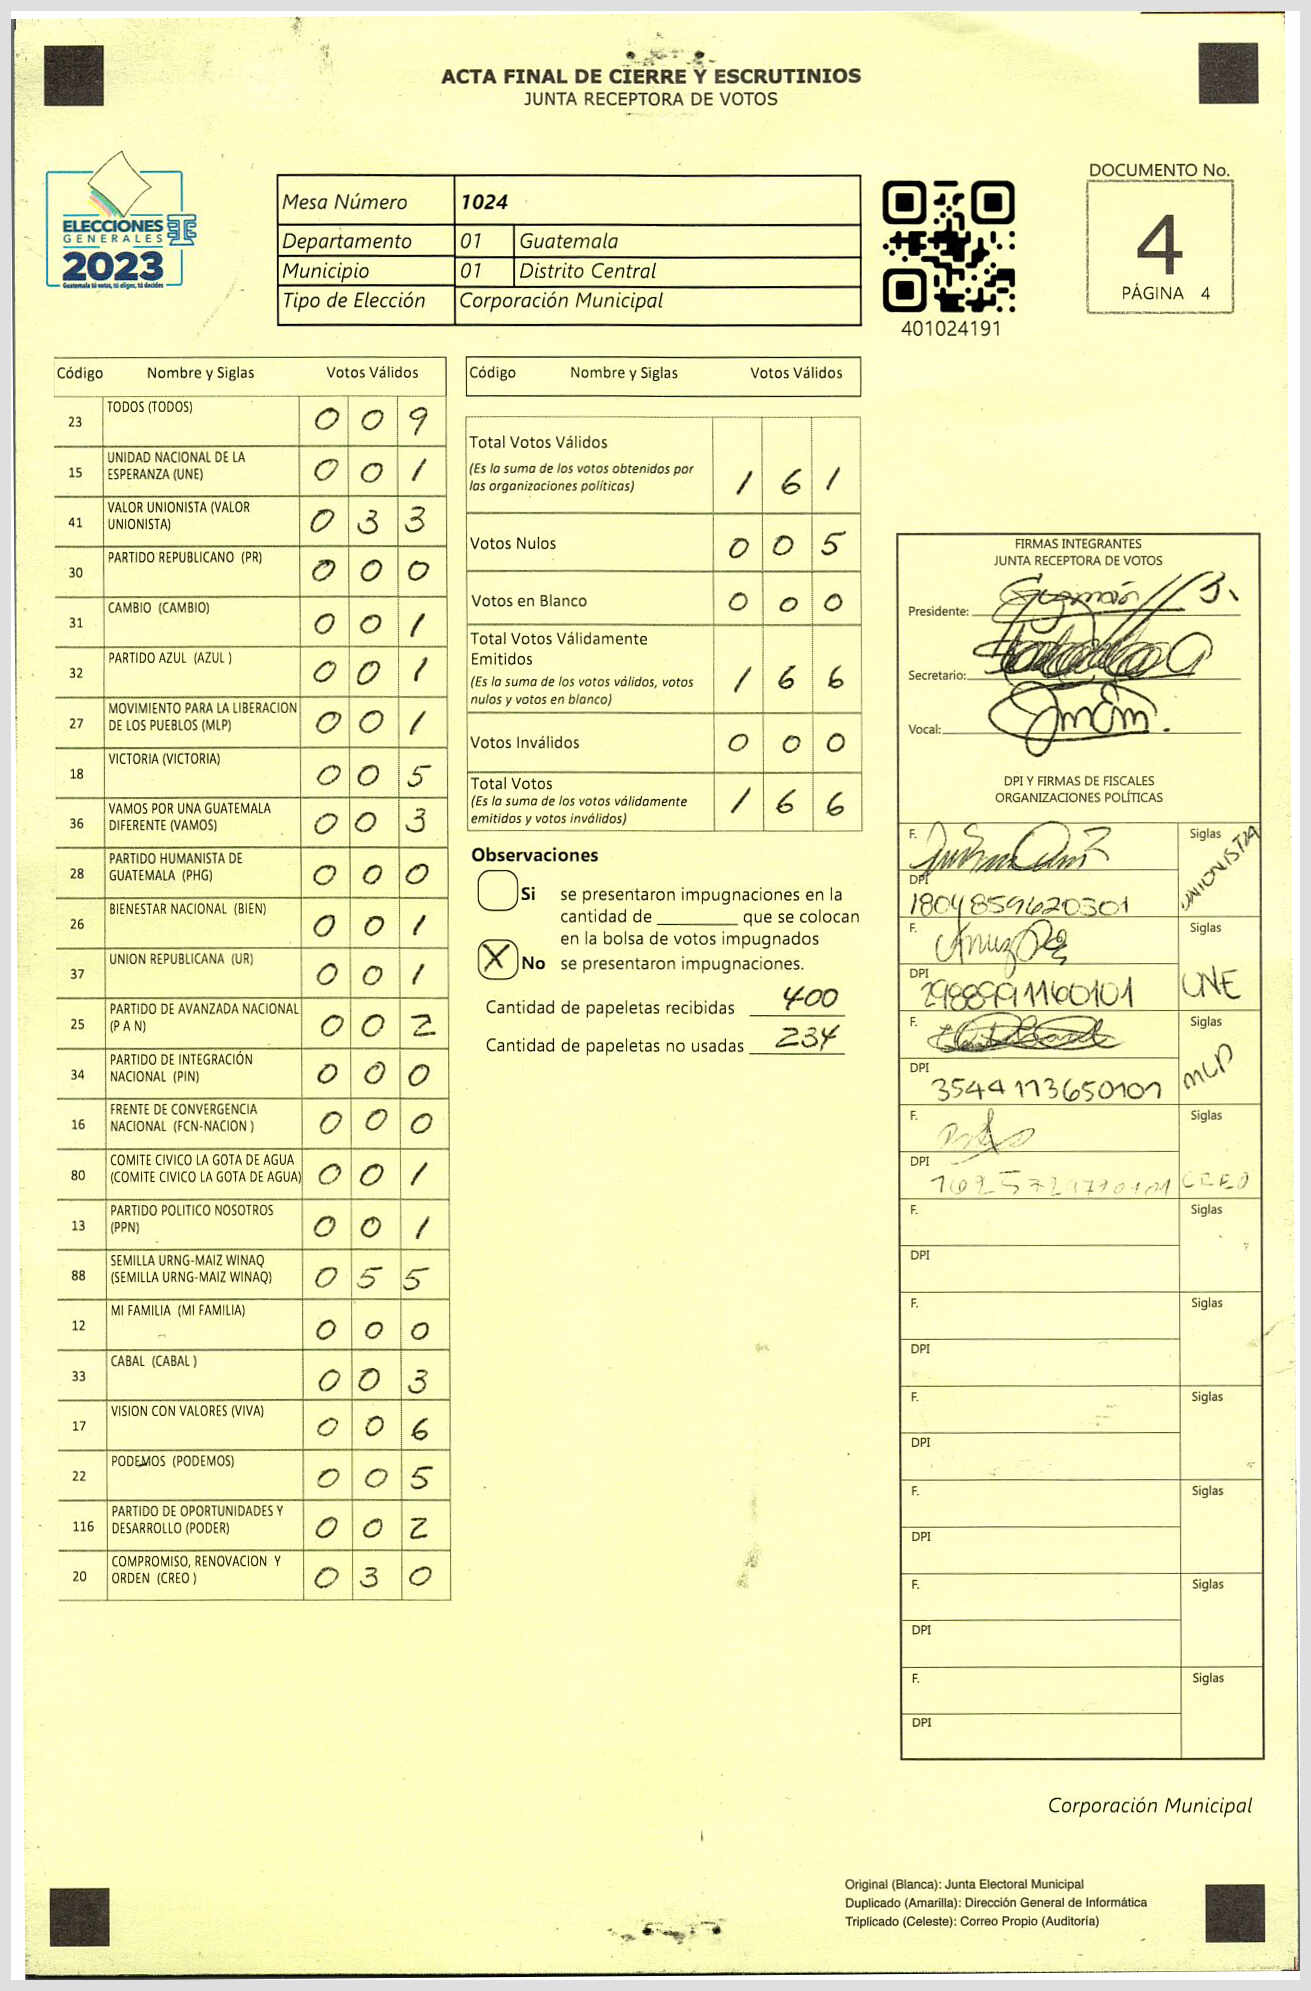 ACTA FINAL DE CIERRE Y ESCRUTINIOS
JUNTA RECEPTORA DE VOTOS
ELECCIONES
GENERALES
2023
Guatemala tú votas, tú eliges, tú decides
Mesa Número 1024
Departamento 01 Guatemala
Municipio 01 Distrito Central
Tipo de Elección Corporación Municipal
401024191
DOCUMENTO No.
4
PÁGINA 4
Código Nombre y Siglas Votos Válidos
23 TODOS (TODOS) 0 0 9
15 UNIDAD NACIONAL DE LA
ESPERANZA (UNE) 0 0 1
41 VALOR UNIONISTA (VALOR
UNIONISTA) 0 3 3
30 PARTIDO REPUBLICANO (PR) 0 0 0
31 CAMBIO (CAMBIO) 0 0 1
32 PARTIDO AZUL (AZUL ) 0 0 1
27 MOVIMIENTO PARA LA LIBERACION
DE LOS PUEBLOS (MLP) 0 0 1
18 VICTORIA (VICTORIA) 0 0 5
36 VAMOS POR UNA GUATEMALA
DIFERENTE (VAMOS) 0 0 3
28 PARTIDO HUMANISTA DE
GUATEMALA (PHG) 0 0 0
26 BIENESTAR NACIONAL (BIEN) 0 0 1
37 UNION REPUBLICANA (UR) 0 0 1
25 PARTIDO DE AVANZADA NACIONAL
(P A N) 0 0 2
34 PARTIDO DE INTEGRACIÓN
NACIONAL (PIN) 0 0 0
16 FRENTE DE CONVERGENCIA
NACIONAL (FCN-NACION ) 0 0 0
80 COMITE CIVICO LA GOTA DE AGUA
(COMITE CIVICO LA GOTA DE AGUA) 0 0 1
13 PARTIDO POLITICO NOSOTROS
(PPN) 0 0 1
88 SEMILLA URNG-MAIZ WINAQ
(SEMILLA URNG-MAIZ WINAQ) 0 5 5
12 MI FAMILIA (MI FAMILIA) 0 0 0
33 CABAL (CABAL ) 0 0 3
17 VISION CON VALORES (VIVA) 0 0 6
22 PODEMOS (PODEMOS) 0 0 5
116 PARTIDO DE OPORTUNIDADES Y
DESARROLLO (PODER) 0 0 2
20 COMPROMISO, RENOVACION Y
ORDEN (CREO ) 0 3 0
Código Nombre y Siglas Votos Válidos
Total Votos Válidos
(Es la suma de los votos obtenidos por
las organizaciones políticas) 1 6 1
Votos Nulos 0 0 5
Votos en Blanco 0 0 0
Total Votos Válidamente
Emitidos
(Es la suma de los votos válidos, votos
nulos y votos en blanco) 1 6 6
Votos Inválidos 0 0 0
Total Votos
(Es la suma de los votos válidamente
emitidos y votos inválidos) 1 6 6
Observaciones
Si se presentaron impugnaciones en la
cantidad de ________ que se colocan
en la bolsa de votos impugnados
X No se presentaron impugnaciones.
Cantidad de papeletas recibidas 400
Cantidad de papeletas no usadas 234
FIRMAS INTEGRANTES
JUNTA RECEPTORA DE VOTOS
Presidente:
Secretario:
Vocal:
DPI Y FIRMAS DE FISCALES
ORGANIZACIONES POLÍTICAS
F. Siglas
UNIONISTA
DPI
1804859620301
F. Siglas
DPI UNE
2988991160101
F. Siglas
DPI MLP
3544173650101
F. Siglas
DPI
CREO
F. Siglas
DPI
F. Siglas
DPI
F. Siglas
DPI
F. Siglas
DPI
F. Siglas
DPI
F. Siglas
DPI
Corporación Municipal
Original (Blanca): Junta Electoral Municipal
Duplicado (Amarilla): Dirección General de Informática
Triplicado (Celeste): Correo Propio (Auditoría)